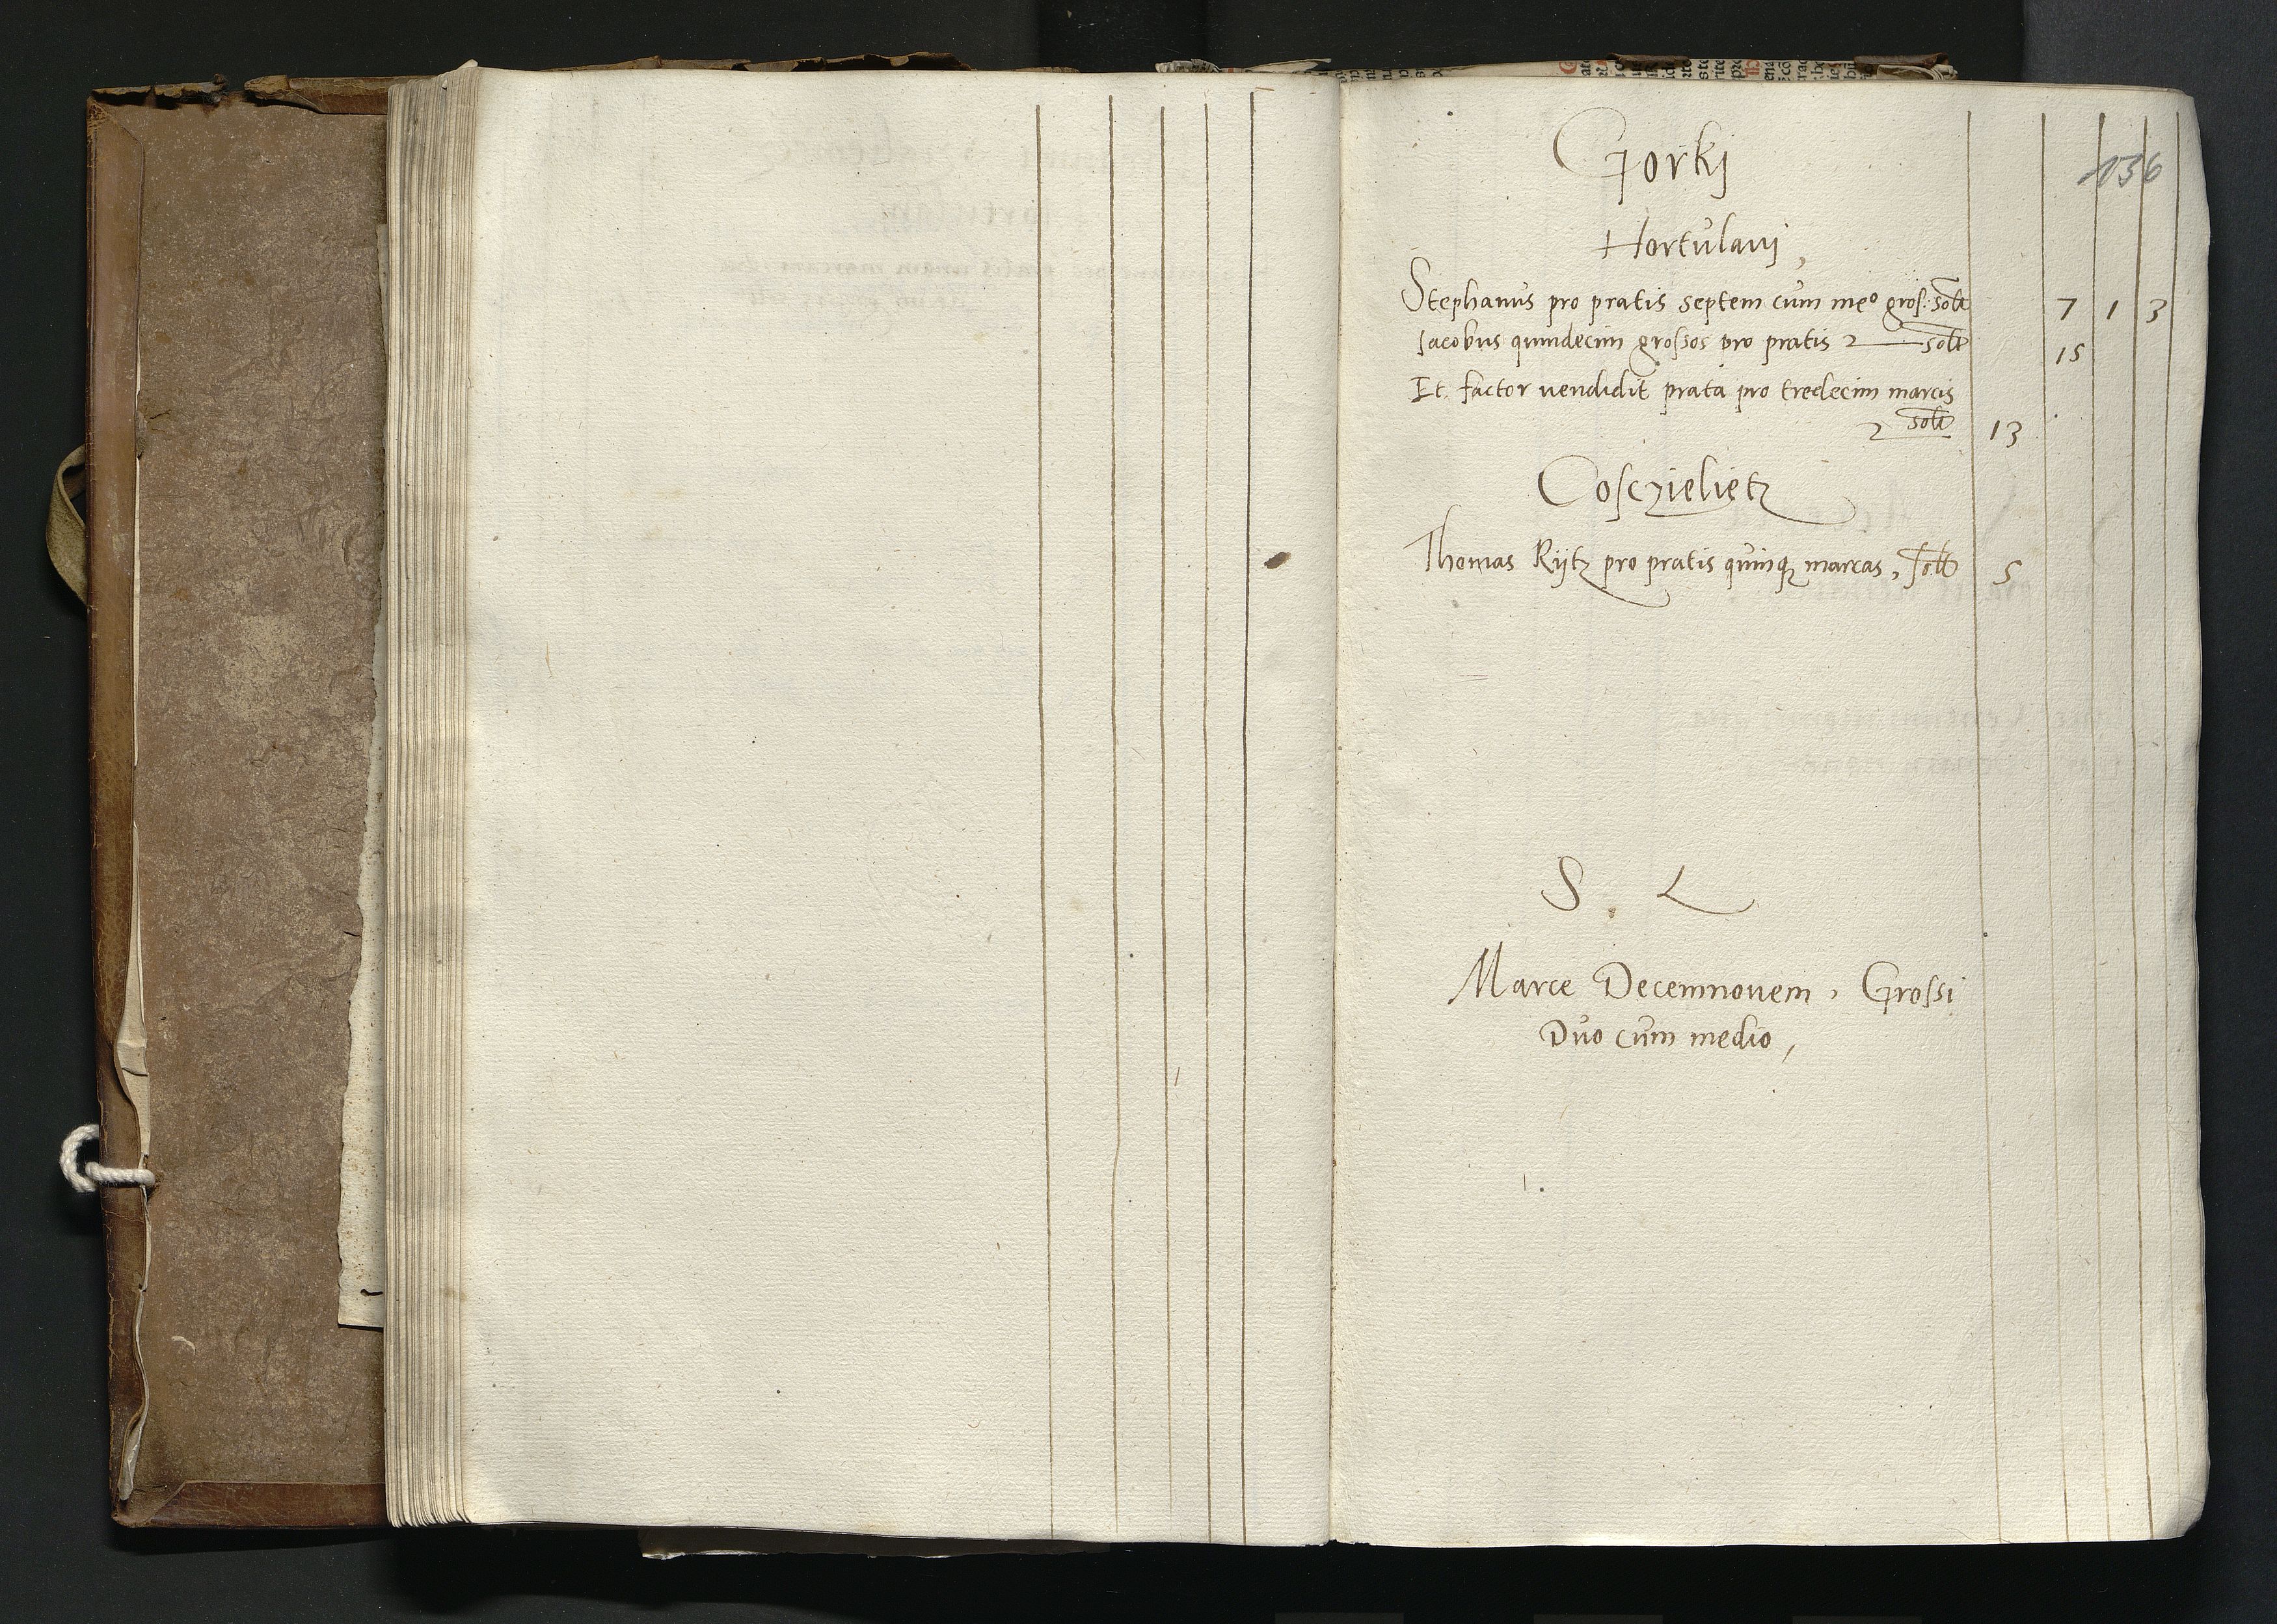 136
Gorkj
Hortulanj,
Stephanus pro pratis septem cum meº gros: solt 7 1 3
Jacobus quindecim grossos pro pratis 2 solt 15
Et factor uendidit prata pro tredecim marcis
2 solt 13
Cosczieliętz
Thomas Rijtz pro pratis quinq marcas, solt 5
S. L
Marce Decemnouem, Grossi
Duo cum medio,